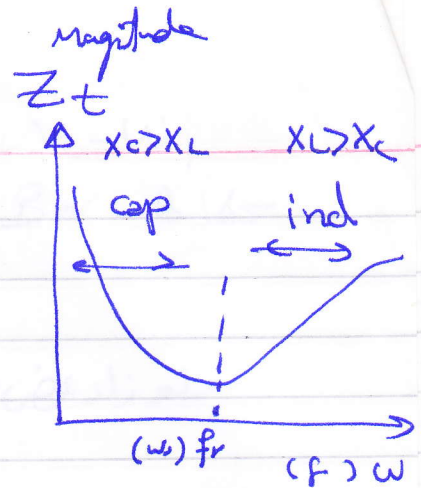 Magnitude
Zt
Xc>XL XL>Xc
cap ind
(ω) fr
(f) ω